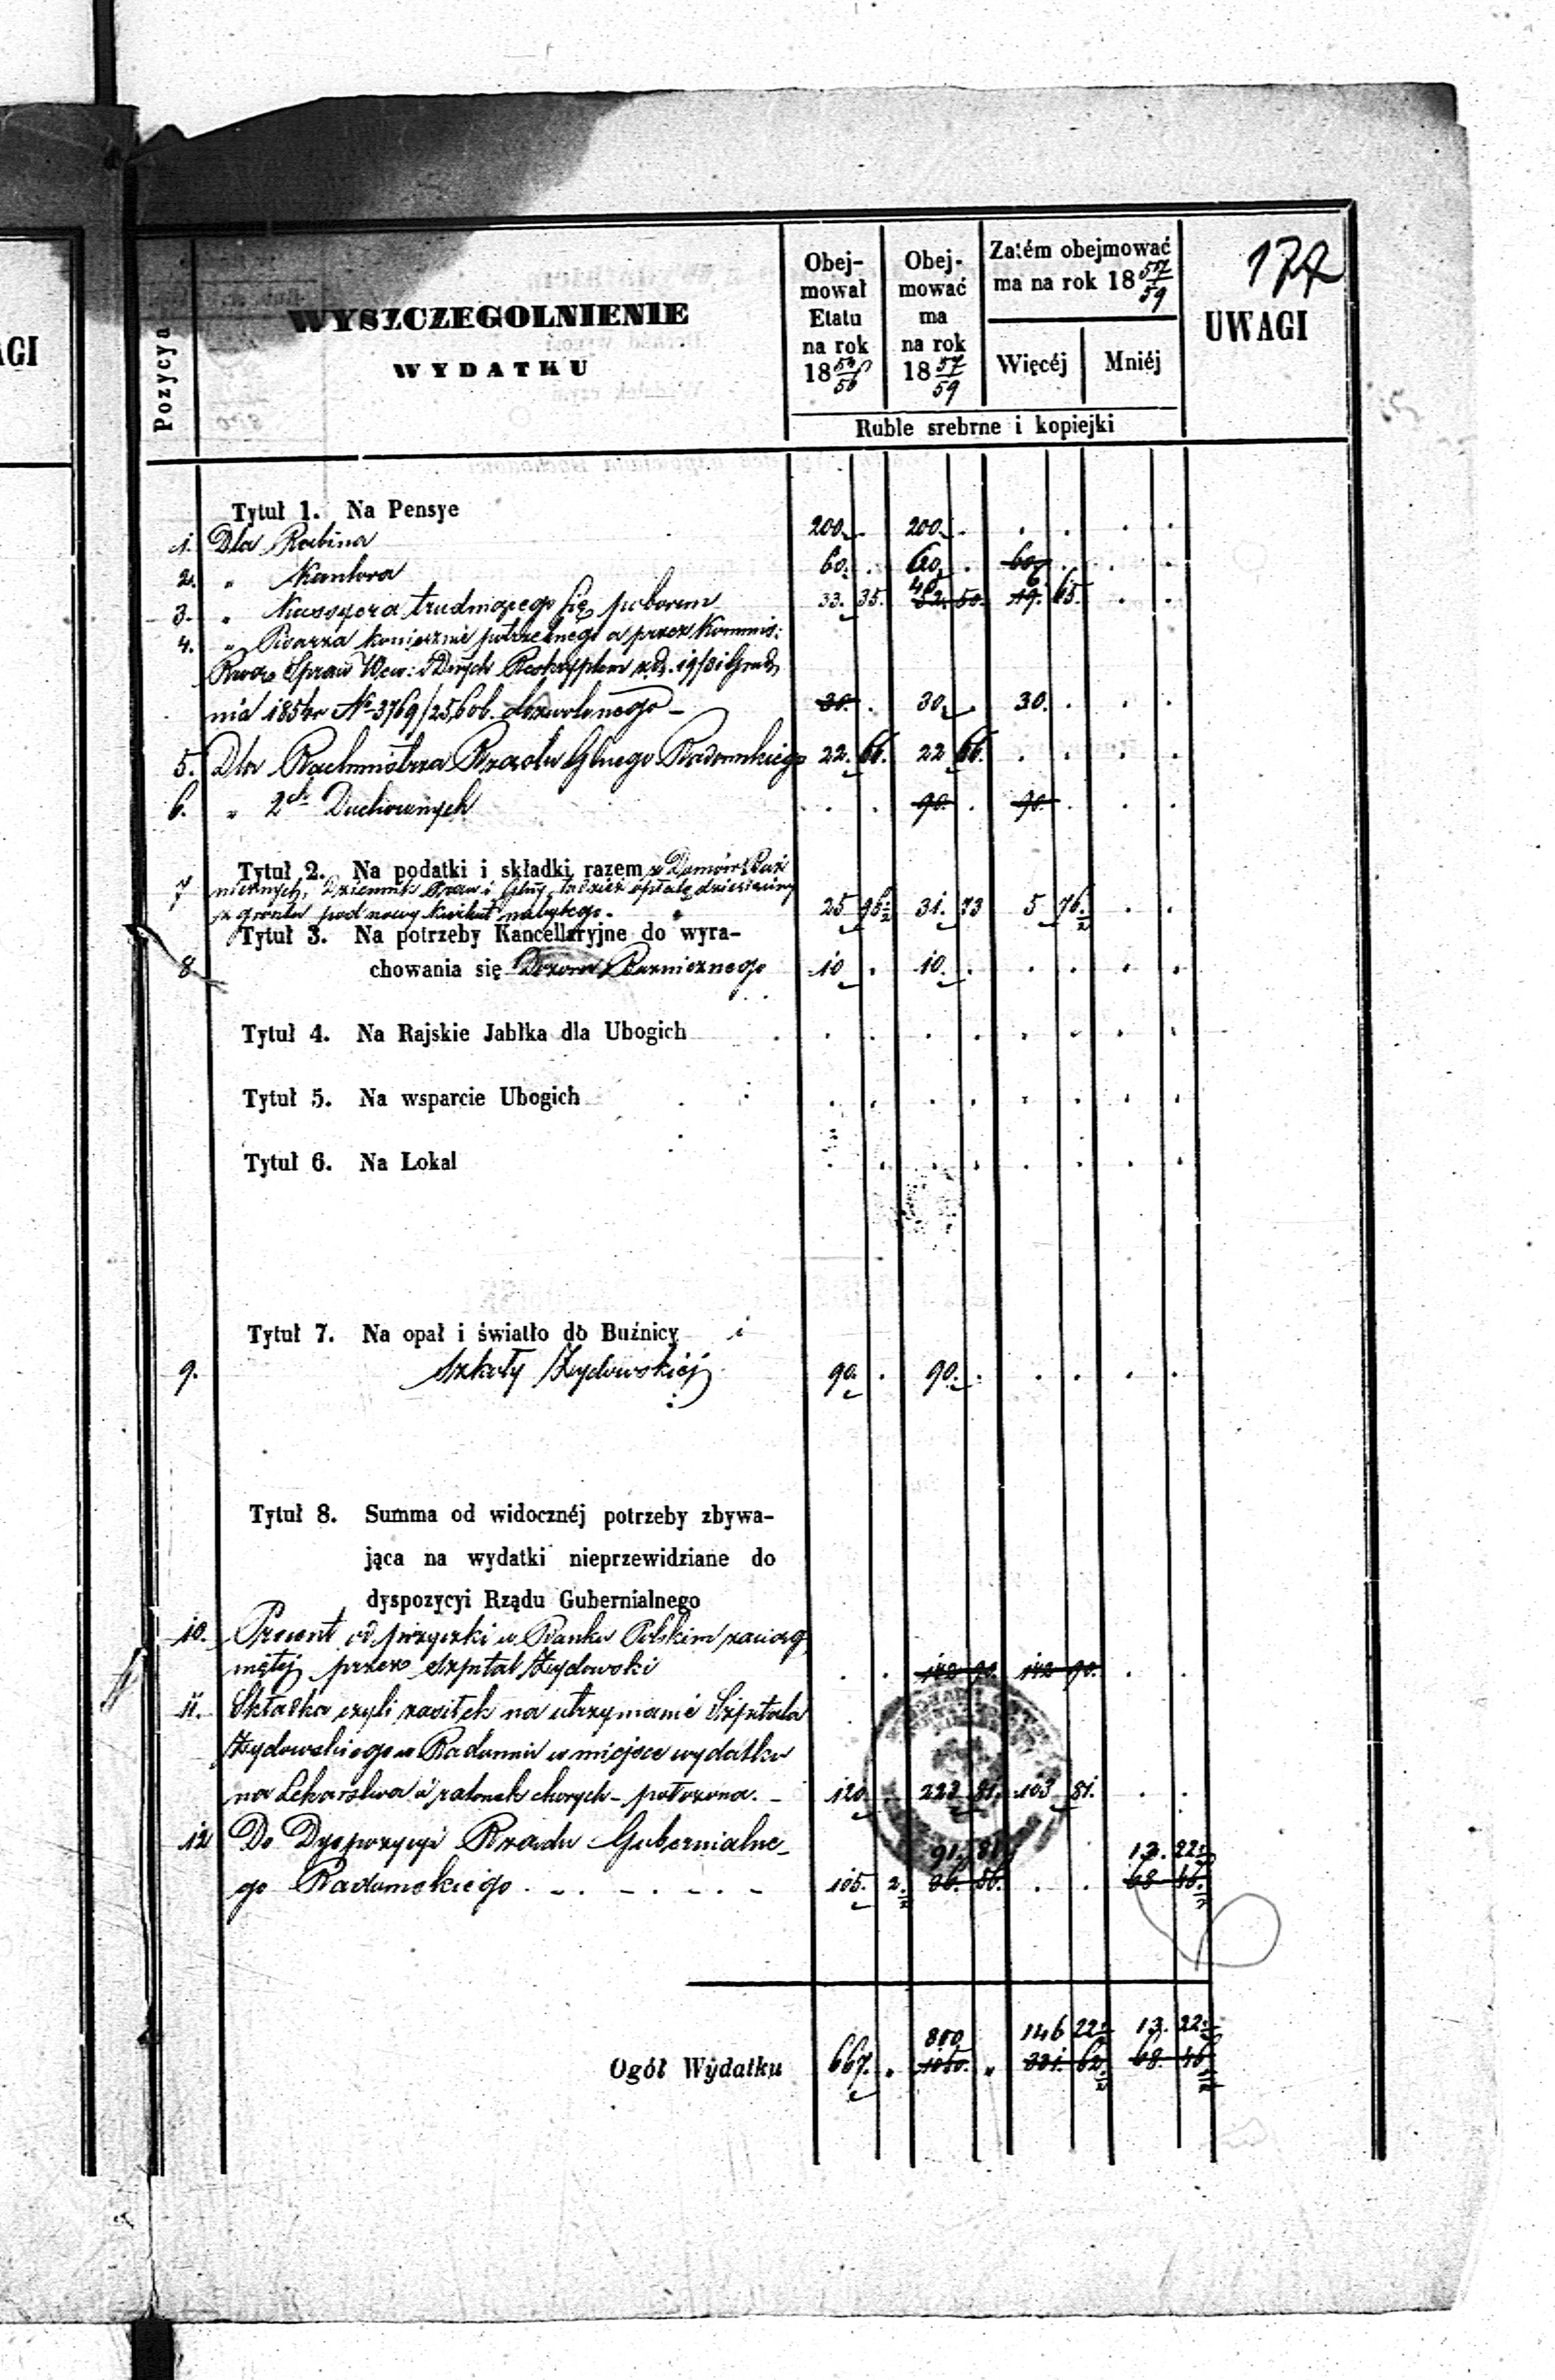 AGI
177
Pozycya
WYSZCZEGOLNIENIE
WYDATKU
Obej-
mował
Etatu
na rok
18 54/56
Obej-
mować
ma
na rok
18 57/59
Zatém obejmować
ma na rok 18 57/59
Więcéj
Mniéj
UWAGI
Ruble srebrne i kopiejki
Tytuł 1. Na Pensye
1. Dla Rabina 200. . 200. . . . . .
2. " Kantora 60. . 60. . 60. . . .
3. " Kassyera trudniącego się poborem 33. 35. 40 52. 50. 6. 19. 65. . .
4. " Pisarza koniecznie potrzebnego a przez Kommis:
Spraw Wew: i Duch Reskryptem z d. 19/31 Grud
nia 1854 r № 3769/25,606. dozwolonego - 30. . 30. . 30. . . .
5. Dla Rachmistrza Rządu Glnego Radomskiego 22. 66. 22 66. . . . .
6. " 2ch Duchownych . . 90. . 90. . . .
Tytuł 2. Na podatki i składki razem z Domów Boż
7 niczych, Dziennik Praw i Glny, tudzież opłatę dziesięciny
z gruntu pod nowy Kirkut nabytego. 25 96½ 31. 73 5 76½ . .
Tytuł 3. Na potrzeby Kancellaryjne do wyra-
8 chowania się Dozoru Bożnicznego 10 . 10. . . . . .
Tytuł 4. Na Rajskie Jabłka dla Ubogich
Tytuł 5. Na wsparcie Ubogich
Tytuł 6. Na Lokal
Tytuł 7. Na opał i światło do Buźnicy i
9. Szkoły Żydowskiéj 90. . 90. . . . . .
Tytuł 8. Summa od widocznéj potrzeby zbywa-
jąca na wydatki nieprzewidziane do
dyspozycyi Rządu Gubernialnego
10. Procent od pożyczki w Banku Polskim zaciąg
niętéj przez Szpital Żydowski . . 142 90. 142 90. . .
11. Składka czyli zasiłek na utrzymanie Szpitala
Żydowskiego w Radomiu w miejsce wydatku
na Lekarstwa i ratunek chorych - położona. - 120. . 223 81. 103 81. . .
12 Do Dyspozycyi Rządu Gubernialne- 91. 81 13. 22½
go Radomskiego . - . - . - . - 105. 2.½ 36. 56. . . 68 46.½
800 146 22½ 13. 22½
Ogół Wydatku 667. " 1050. " 331. 62.½ 68. 46½